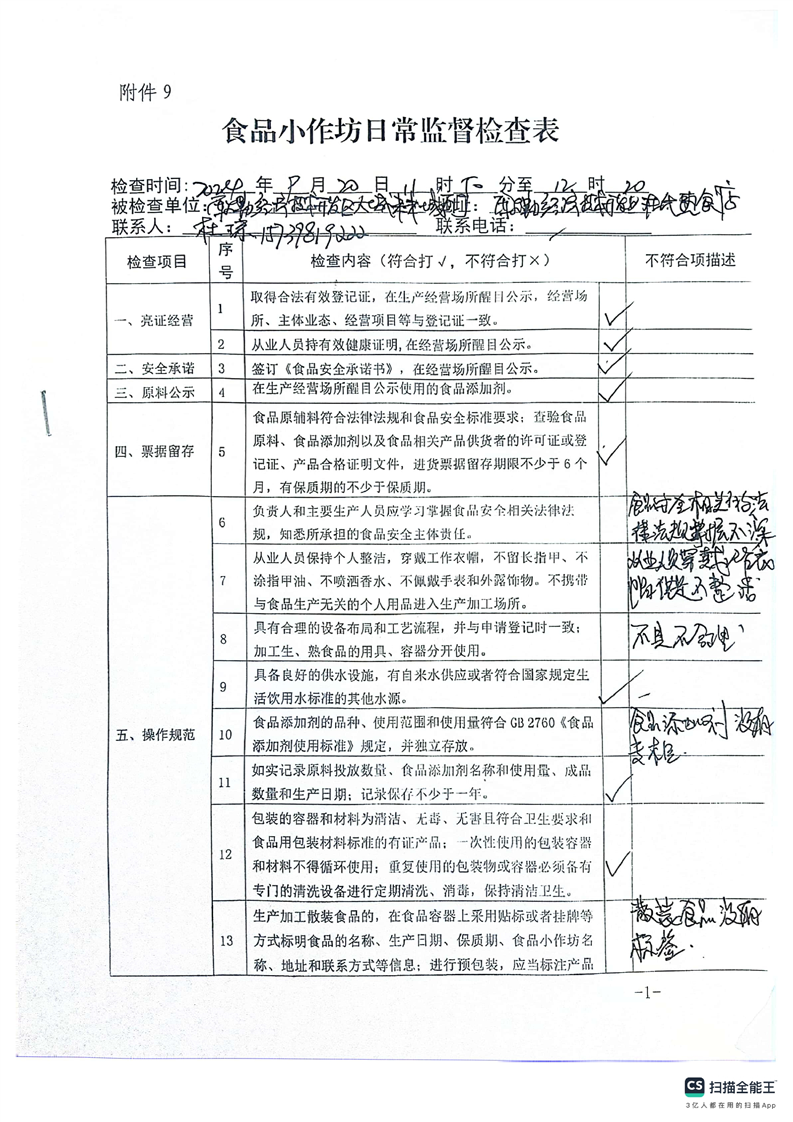 附件 9
食品小作坊日常监督检查表
检查时间: 2024 年 8 月 20 日 11 时 分至 12 时 20
被检查单位: 地址:
联系人: 杜琼 15739819222 联系电话: /
检查项目
序号
检查内容（符合打√，不符合打×）
不符合项描述
一、亮证经营
1
取得合法有效登记证，在生产经营场所醒目公示，经营场
所、主体业态、经营项目等与登记证一致。
√
2
从业人员持有效健康证明,在经营场所醒目公示。
√
二、安全承诺
3
签订《食品安全承诺书》，在经营场所醒目公示。
√
三、原料公示
4
在生产经营场所醒目公示使用的食品添加剂。
√
四、票据留存
5
食品原辅料符合法律法规和食品安全标准要求；查验食品
原料、食品添加剂以及食品相关产品供货者的许可证或登
记证、产品合格证明文件，进货票据留存期限不少于 6 个
月，有保质期的不少于保质期。
√
五、操作规范
6
负责人和主要生产人员应学习掌握食品安全相关法律法
规，知悉所承担的食品安全主体责任。
食品安全相关符合法
律法规掌握不深
7
从业人员保持个人整洁，穿戴工作衣帽，不留长指甲、不
涂指甲油、不喷洒香水、不佩戴手表和外露饰物。不携带
与食品生产无关的个人用品进入生产加工场所。
从业人员穿戴工作衣
帽 不整洁
8
具有合理的设备布局和工艺流程，并与申请登记时一致；
加工生、熟食品的用具、容器分开使用。
不具不合理
9
具备良好的供水设施，有自来水供应或者符合国家规定生
活饮用水标准的其他水源。
√
10
食品添加剂的品种、使用范围和使用量符合 GB 2760《食品
添加剂使用标准》规定，并独立存放。
食品添加剂没有
专柜.
11
如实记录原料投放数量、食品添加剂名称和使用量、成品
数量和生产日期；记录保存不少于一年。
√
12
包装的容器和材料为清洁、无毒、无害且符合卫生要求和
食品用包装材料标准的有证产品；一次性使用的包装容器
和材料不得循环使用；重复使用的包装物或容器必须备有
专门的清洗设备进行定期清洗、消毒，保持清洁卫生。
√
13
生产加工散装食品的，在食品容器上采用贴标或者挂牌等
方式标明食品的名称、生产日期、保质期、食品小作坊名
称、地址和联系方式等信息；进行预包装，应当标注产品
散装食品没有
标签.
-1-
CS 扫描全能王
3亿人都在用的扫描App